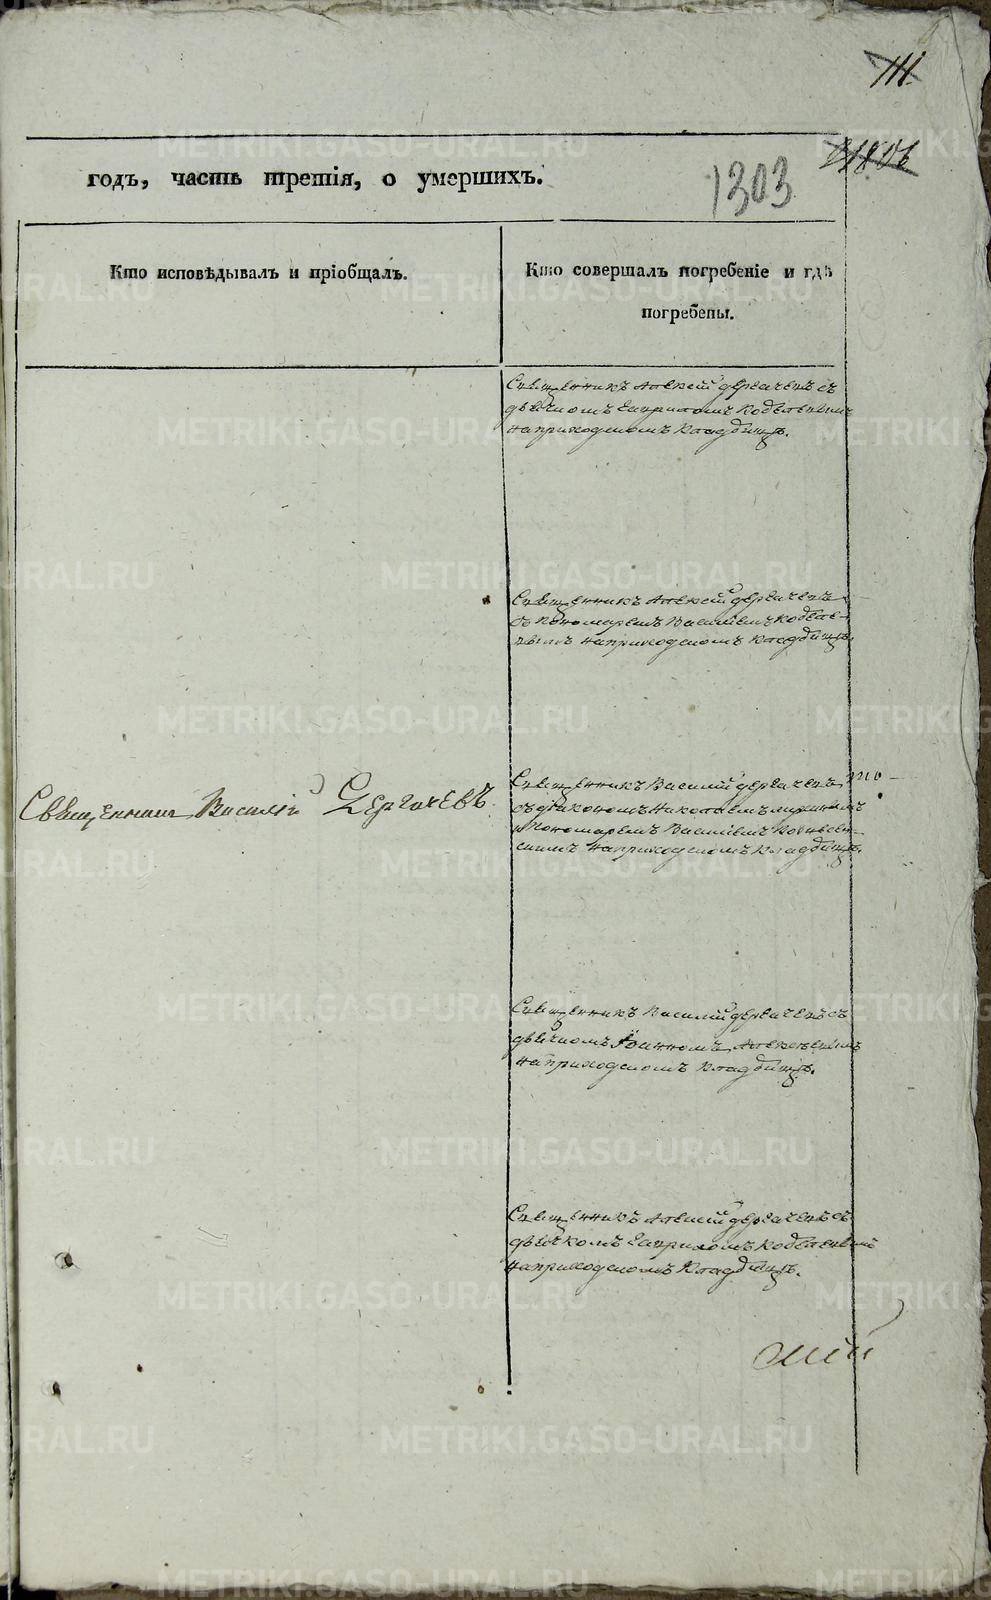 111
1303
годъ, часть третія, о умершихъ.
Кто исповѣдывалъ и пріобщалъ.
Кто совершалъ погребеніе и гдѣ
погребены.
Священникъ Алексій Дергачевъ съ
дьячкомъ Гавриломъ
на приходскомъ кладбищѣ.
Священникъ Алексей Дергачевъ
съ пономаремъ Василіемъ
на приходскомъ кладбищѣ.
Священникъ Василій Дергачевъ
Священникъ Василій Дергачевъ
съ діакономъ Николаемъ
и пономаремъ Василіемъ
на приходскомъ кладбищѣ.
Священникъ Василій Дергачевъ съ
дьячкомъ Іоанномъ
на приходскомъ кладбищѣ.
Священникъ Алексій Дергачевъ съ
дьячкомъ Гавриломъ
на приходскомъ кладбищѣ.
METRIKI.GASO-URAL.RU